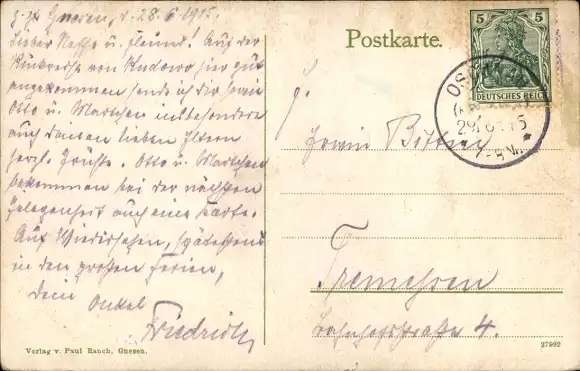 z. Zt. Gnesen, d. 28.6.1915.
Lieber Neffe u. Freund! Auf der
Rückreise von Kudowa hier gut
angekommen sende ich dir sowie
Otto u. Martchen insbesondere
auch deinen lieben Eltern
herzl. Grüße. Otto u. Martchen
bekommen bei der nächsten
Gelegenheit auch eine Karte.
Auf Wiedersehen, spätestens
in den großen Ferien,
Dein Onkel
Friedrich
Verlag v. Paul Rauch, Gnesen.
Postkarte.
5 5
DEUTSCHES REICH
29.6.15
Erwin Bittner
Tremessen
Bahnhofstraße 4.
27982